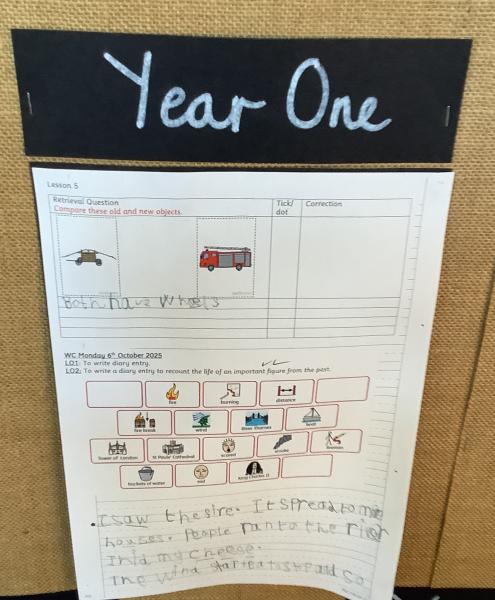 Year One
Lesson 5
Retrieval Question
Compare these old and new objects.
Tick/
dot
Correction
Both have wheels
WC Monday 6th October 2025
LO1: To write diary entry.
LO2: To write a diary entry to recount the life of an important figure from the past.
fire
burning
distance
fire break
wind
River Thames
boat
Tower of London
St Pauls' Cathedral
scared
smoke
buckets of water
sad
King Charles II
I saw the sire. It spread to
houses. People ran to the river
I hid my cheese.
The wind
so